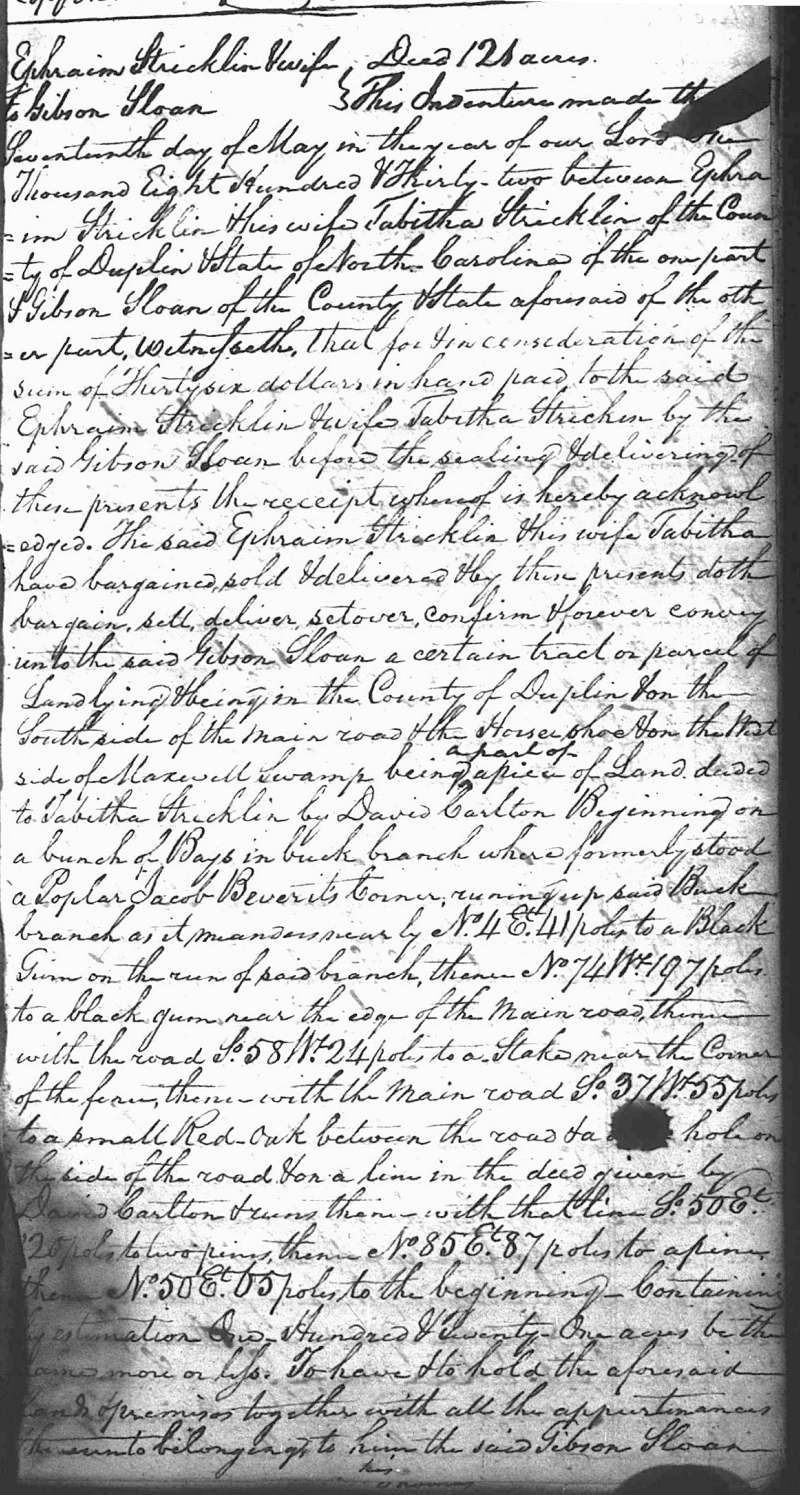 Ephraim Stricklin & wife } Deed 121 acres.
to Gibson Sloan } This Indenture made the
Seventeenth day of May in the year of our Lord one
Thousand Eight Hundred & Thirty-two between Ephra
=im Stricklin & his wife Tabitha Stricklin of the Coun
=ty of Duplin & State of North-Carolina of the one part
& Gibson Sloan of the County & State aforesaid of the oth
=er part, Witnesseth, that for & in consideration of the
sum of Thirty six dollars in hand paid to the said
Ephraim Stricklin & wife Tabitha Strickin by the
said Gibson Sloan before the sealing & delivering of
these presents the receipt whereof is hereby acknowl
=edged. The said Ephraim Stricklin & his wife Tabitha
have bargained, sold & delivered & by these presents doth
bargain, sell, deliver, set over, confirm & forever convey
unto the said Gibson Sloan a certain tract or parcel of
Land lying & being in the County of Duplin & on the
South side of the main road & the Horse shoe & on the West
a part of
side of Maxwell Swamp being a piece of Land deeded
to Tabitha Stricklin by David Carlton Beginning on
a bunch of Bays in buck branch where formerly stood
a Poplar Jacob Beverits Corner, runing up said Buck
branch as it meanders near ly No. 4 Et. 41 poles to a Black
Gum on the run of said branch, thence No. 74 Wt. 197 poles
to a black gum near the edge of the Main road, thence
with the road So. 58 Wt. 24 poles to a Stake near the Corner
of the fence, thence with the Main road So. 37 Wt. 55 poles
to a small Red-Oak between the road & a hole on
the side of the road & on a line in the deed given by
David Carlton & runs thence with that line So. 50 Et.
120 poles to two pines, thence No. 85 Et. 87 poles to a pine
thence No. 50 Et. 65 poles to the beginning - Containing
by estimation One-Hundred & Twenty-One acres be the
same more or less. To have & to hold the aforesaid
land & premises together with all the appurtinances
thereunto belonging to him the said Gibson Sloan
his